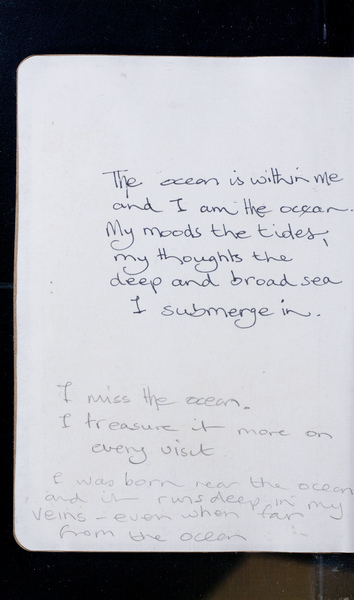 The ocean is within me
and I am the ocean.
My moods the tides,
my thoughts the
deep and broad sea
I submerge in.
I miss the ocean.
I treasure it more on
every visit
I was born near the ocean
and it runs deep in my
veins - even when far
from the ocean